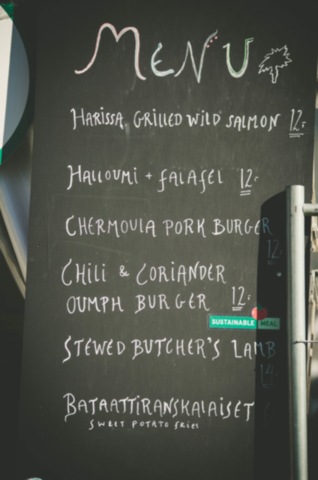 MENU
HARISSA GRILLED WILD SALMON 12,-
HALLOUMI + FALAFEL 12,-
CHERMOULA PORK BURGER
12,-
CHILI & CORIANDER
OUMPH BURGER 12,-
SUSTAINABLE MEAL
STEWED BUTCHER'S LAMB
14,-
BATAATTIRANSKALAISET
SWEET POTATO FRIES